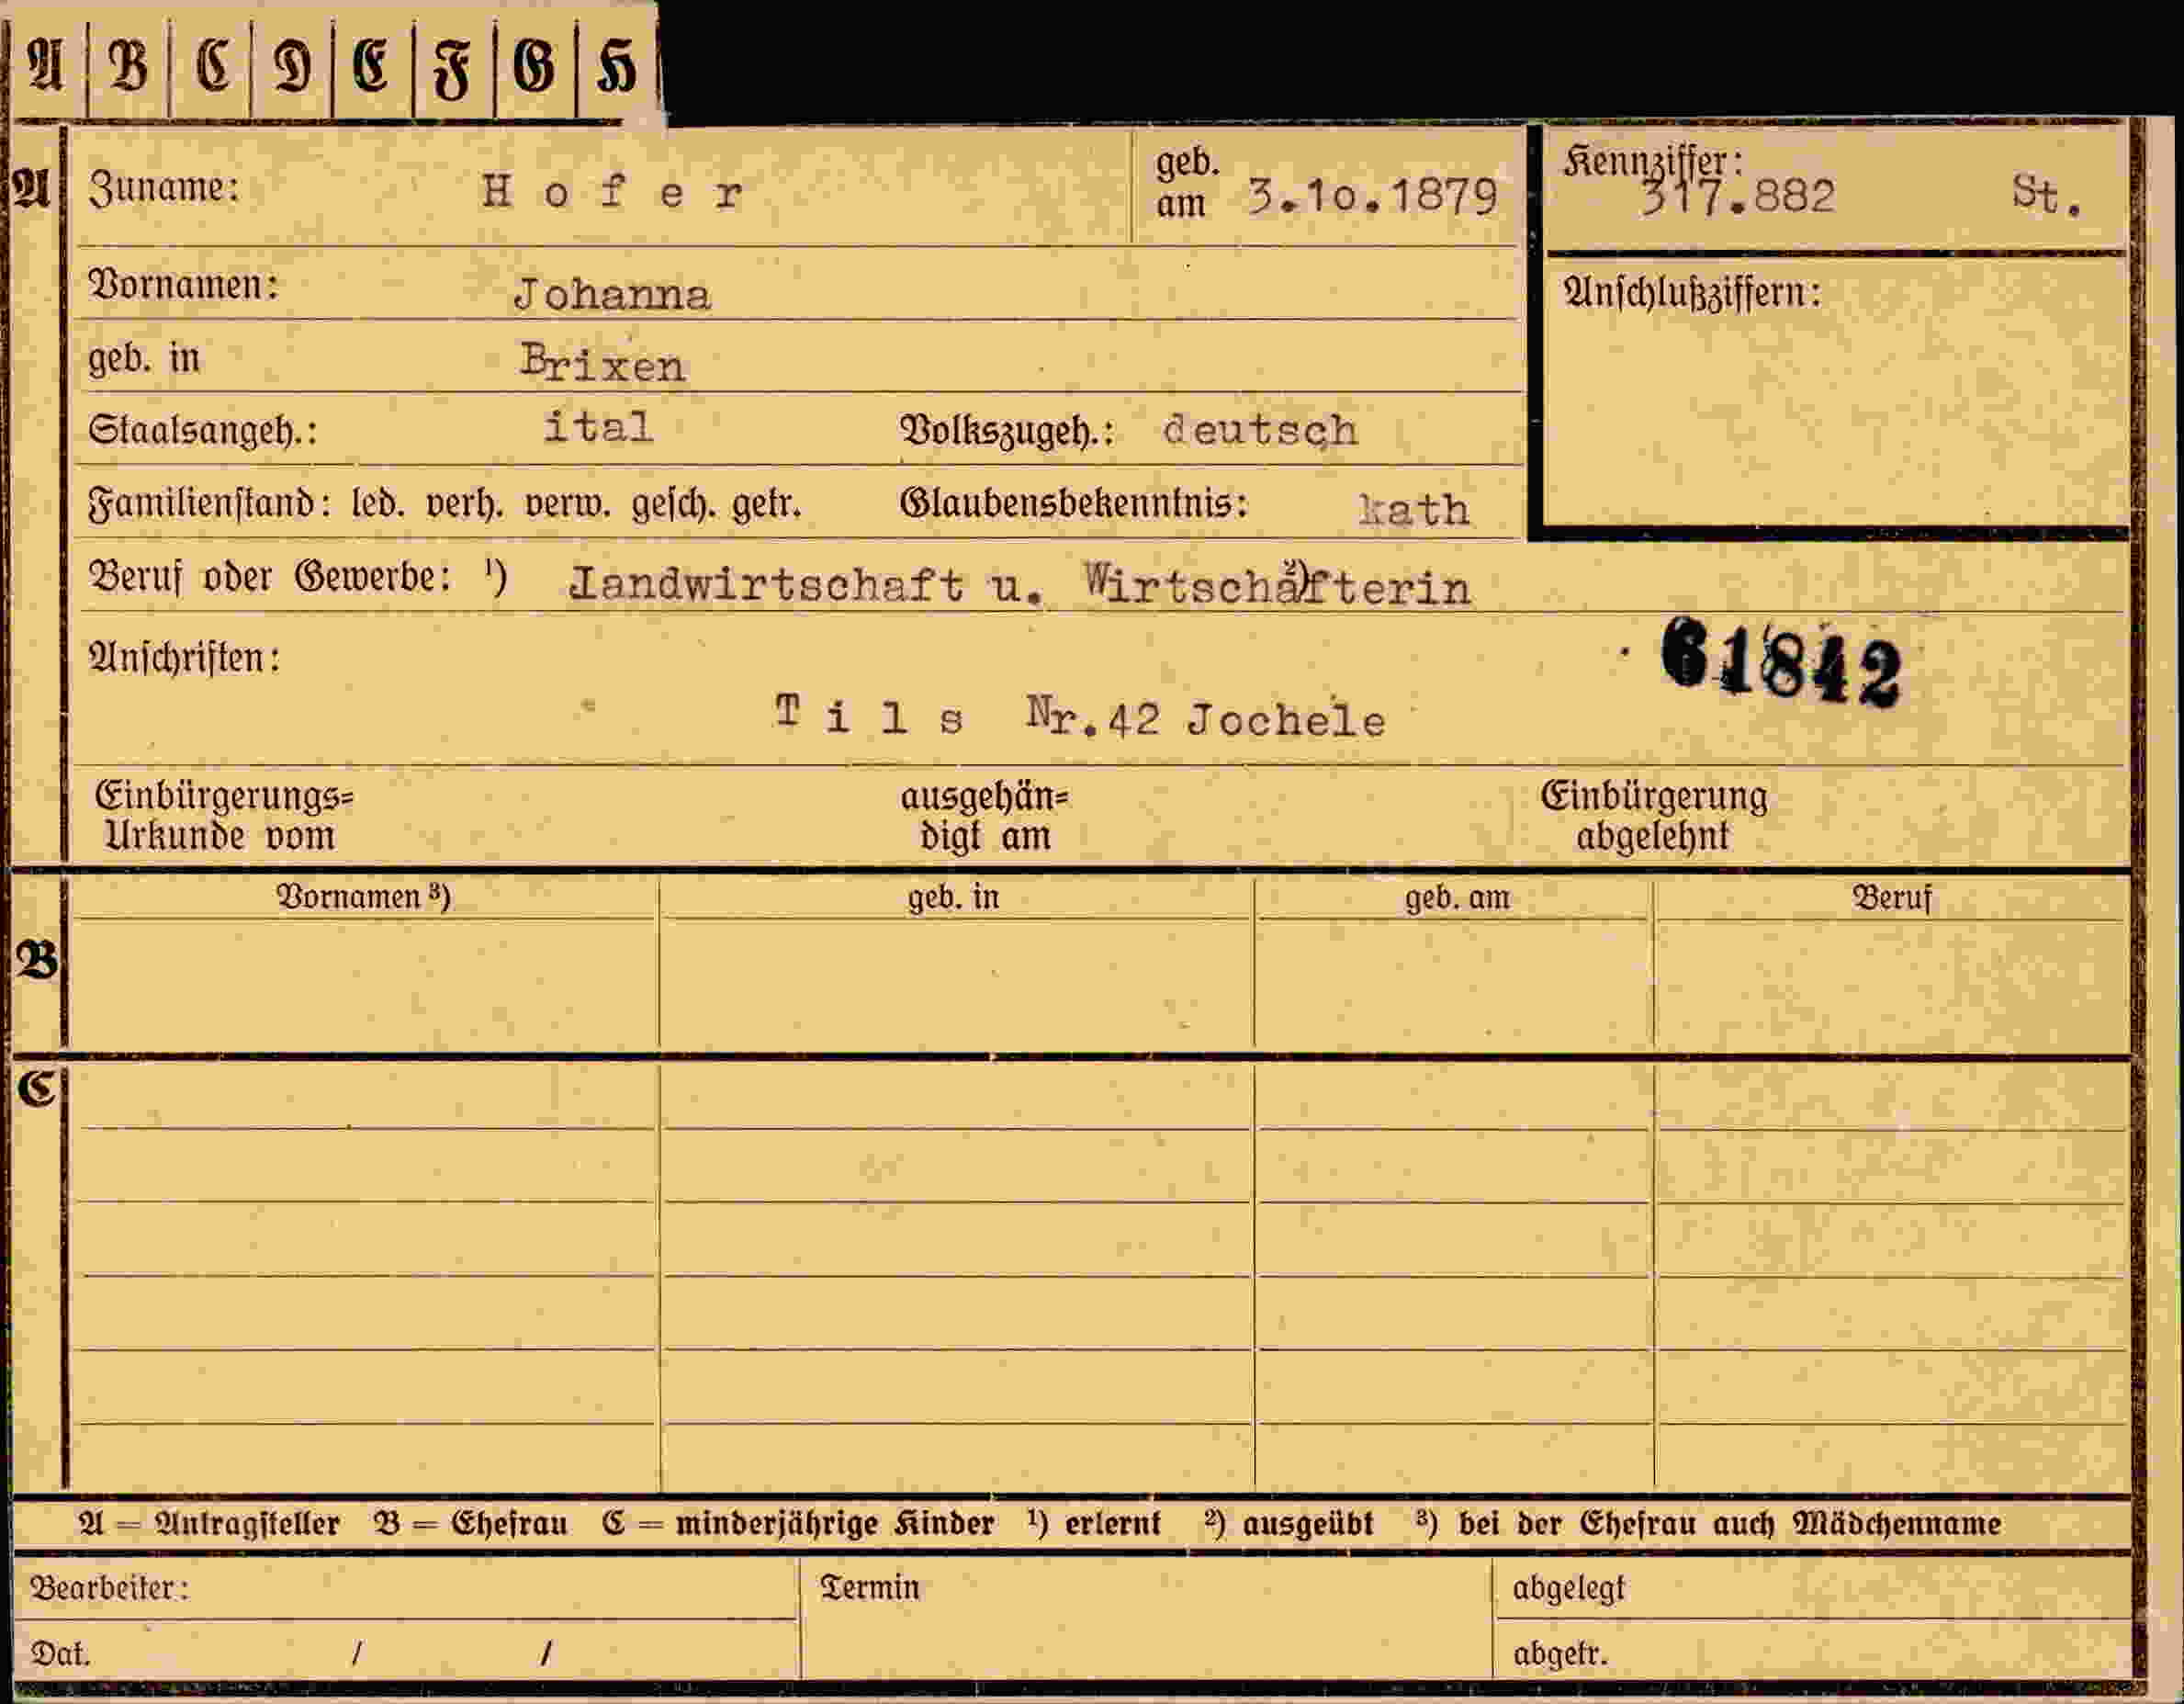 A B C D E F G H
A Zuname: Hofer geb. am 3.10.1879 Kennziffer: 317.882 St.
Vornamen: Johanna Anschlußziffern:
geb. in Brixen
Staatsangeh.: ital Volkszugeh.: deutsch
Familienstand: led. verh. verw. gesch. getr. Glaubensbekenntnis: kath
Beruf oder Gewerbe: ¹) Landwirtschaft u. ²) Wirtschafterin
Anschriften: 61842
Tils Nr.42 Jochele
Einbürgerungs= ausgehän= Einbürgerung
Urkunde vom digt am abgelehnt
Vornamen ³) geb. in geb. am Beruf
B
C
A = Antragsteller B = Ehefrau C = minderjährige Kinder ¹) erlernt ²) ausgeübt ³) bei der Ehefrau auch Mädchenname
Bearbeiter: Termin abgelegt
Dat. / / abgetr.